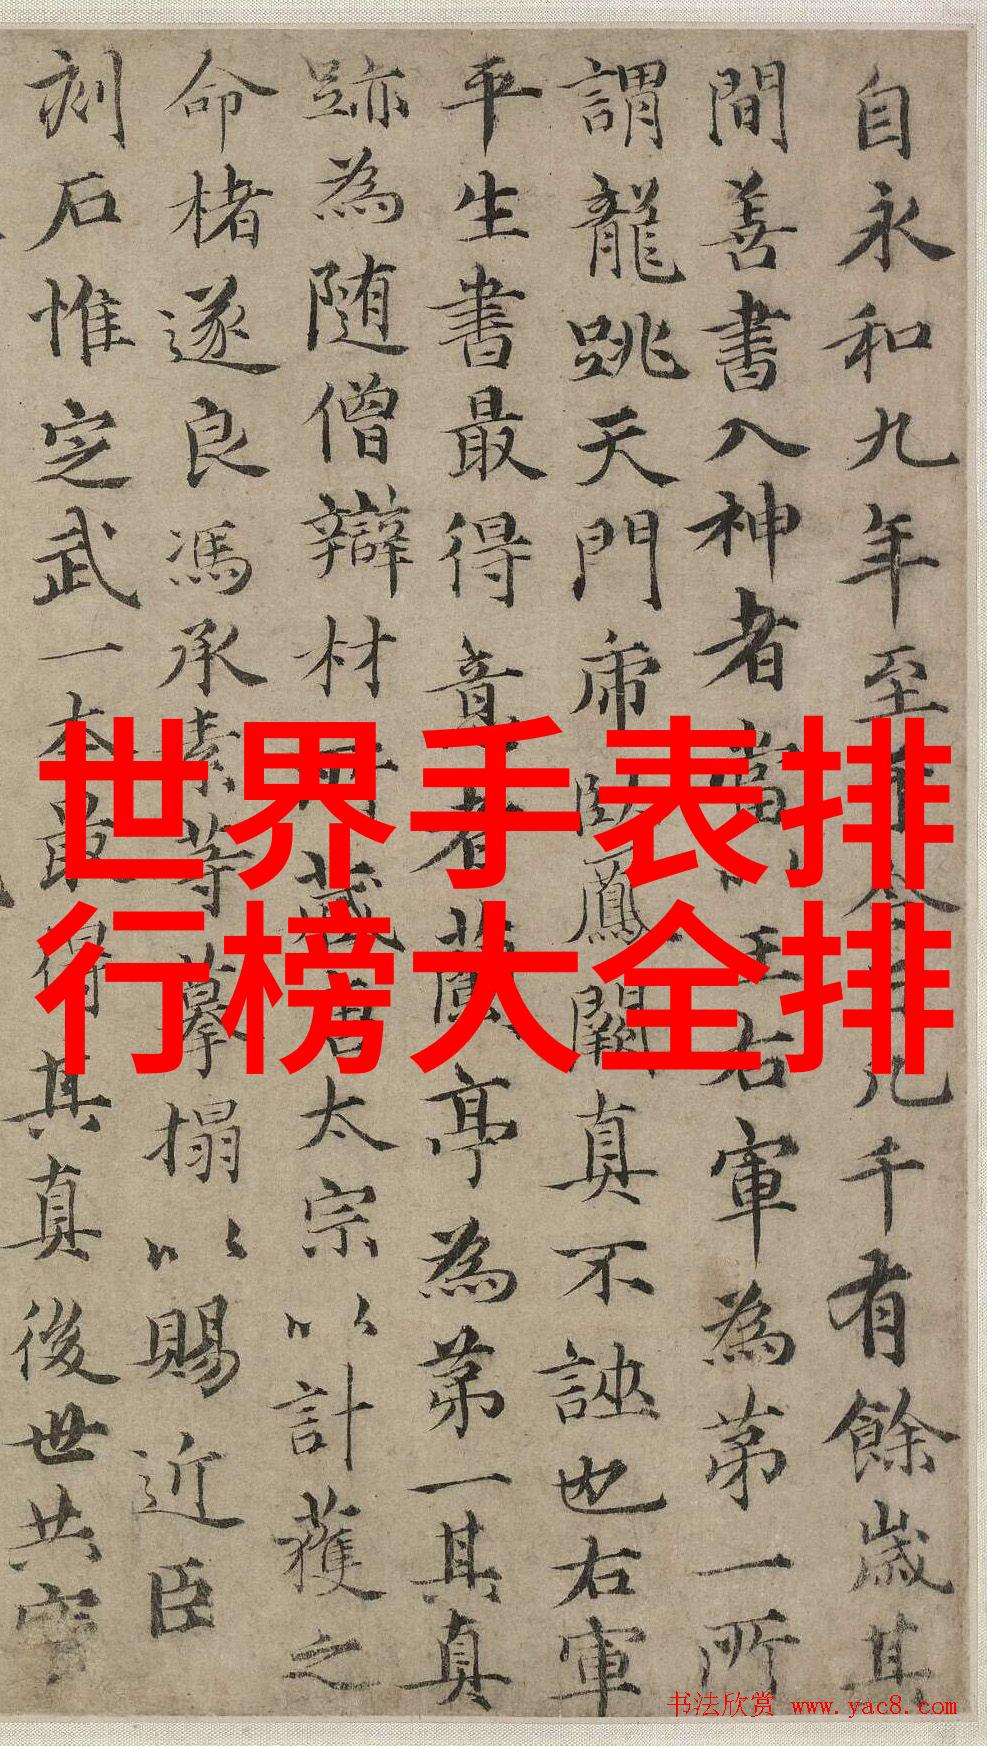 自永和九年至今凡千有餘歲其
間善書入神者當以王右軍為第一所
謂龍跳天門虎卧鳳閣真不誣也右軍
平生書最得意者蘭亭為第一其真
跡為随僧辯材所藏唐太宗以計獲之
命楮遂良馮承素等摹搨以賜近臣
刻石惟定武一本最得其真後世共寳
世界手表排
行榜大全排
书法欣赏 www.yac8.com